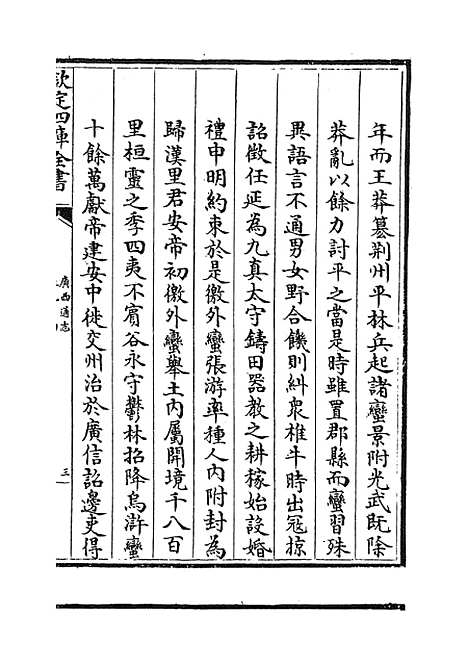 年而王莽簒荆州平林兵起諸蠻景附光武旣除
莽亂以餘力討平之當是時雖置郡縣而蠻習殊
異語言不通男女野合饑則糾衆椎牛時出冦掠
詔徴任延為九真太守鑄田器教之耕稼始設婚
禮申明約束於是徼外蠻張游率種人内附封為
歸漢里君安帝初徼外蠻舉土内屬開境千八百
里桓靈之季四夷不賔谷永守鬱林招降烏滸蠻
十餘萬獻帝建安中徙交州治於廣信詔邊吏得
欽定四庫全書
廣西通志